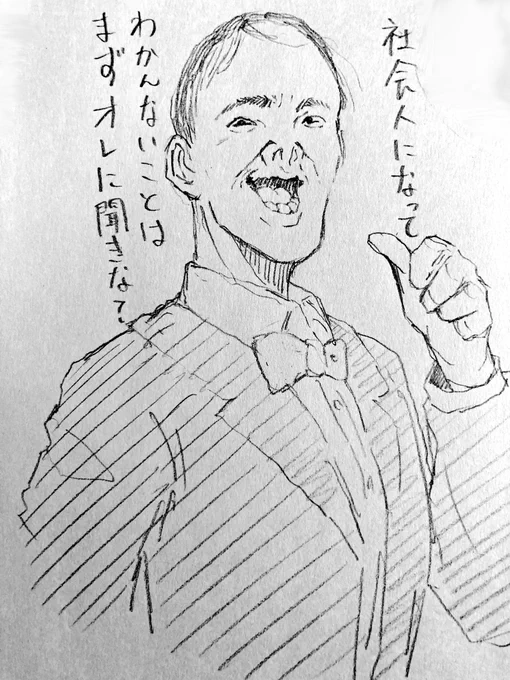 社会人になって
わかんないことは
まずオレに聞きな?